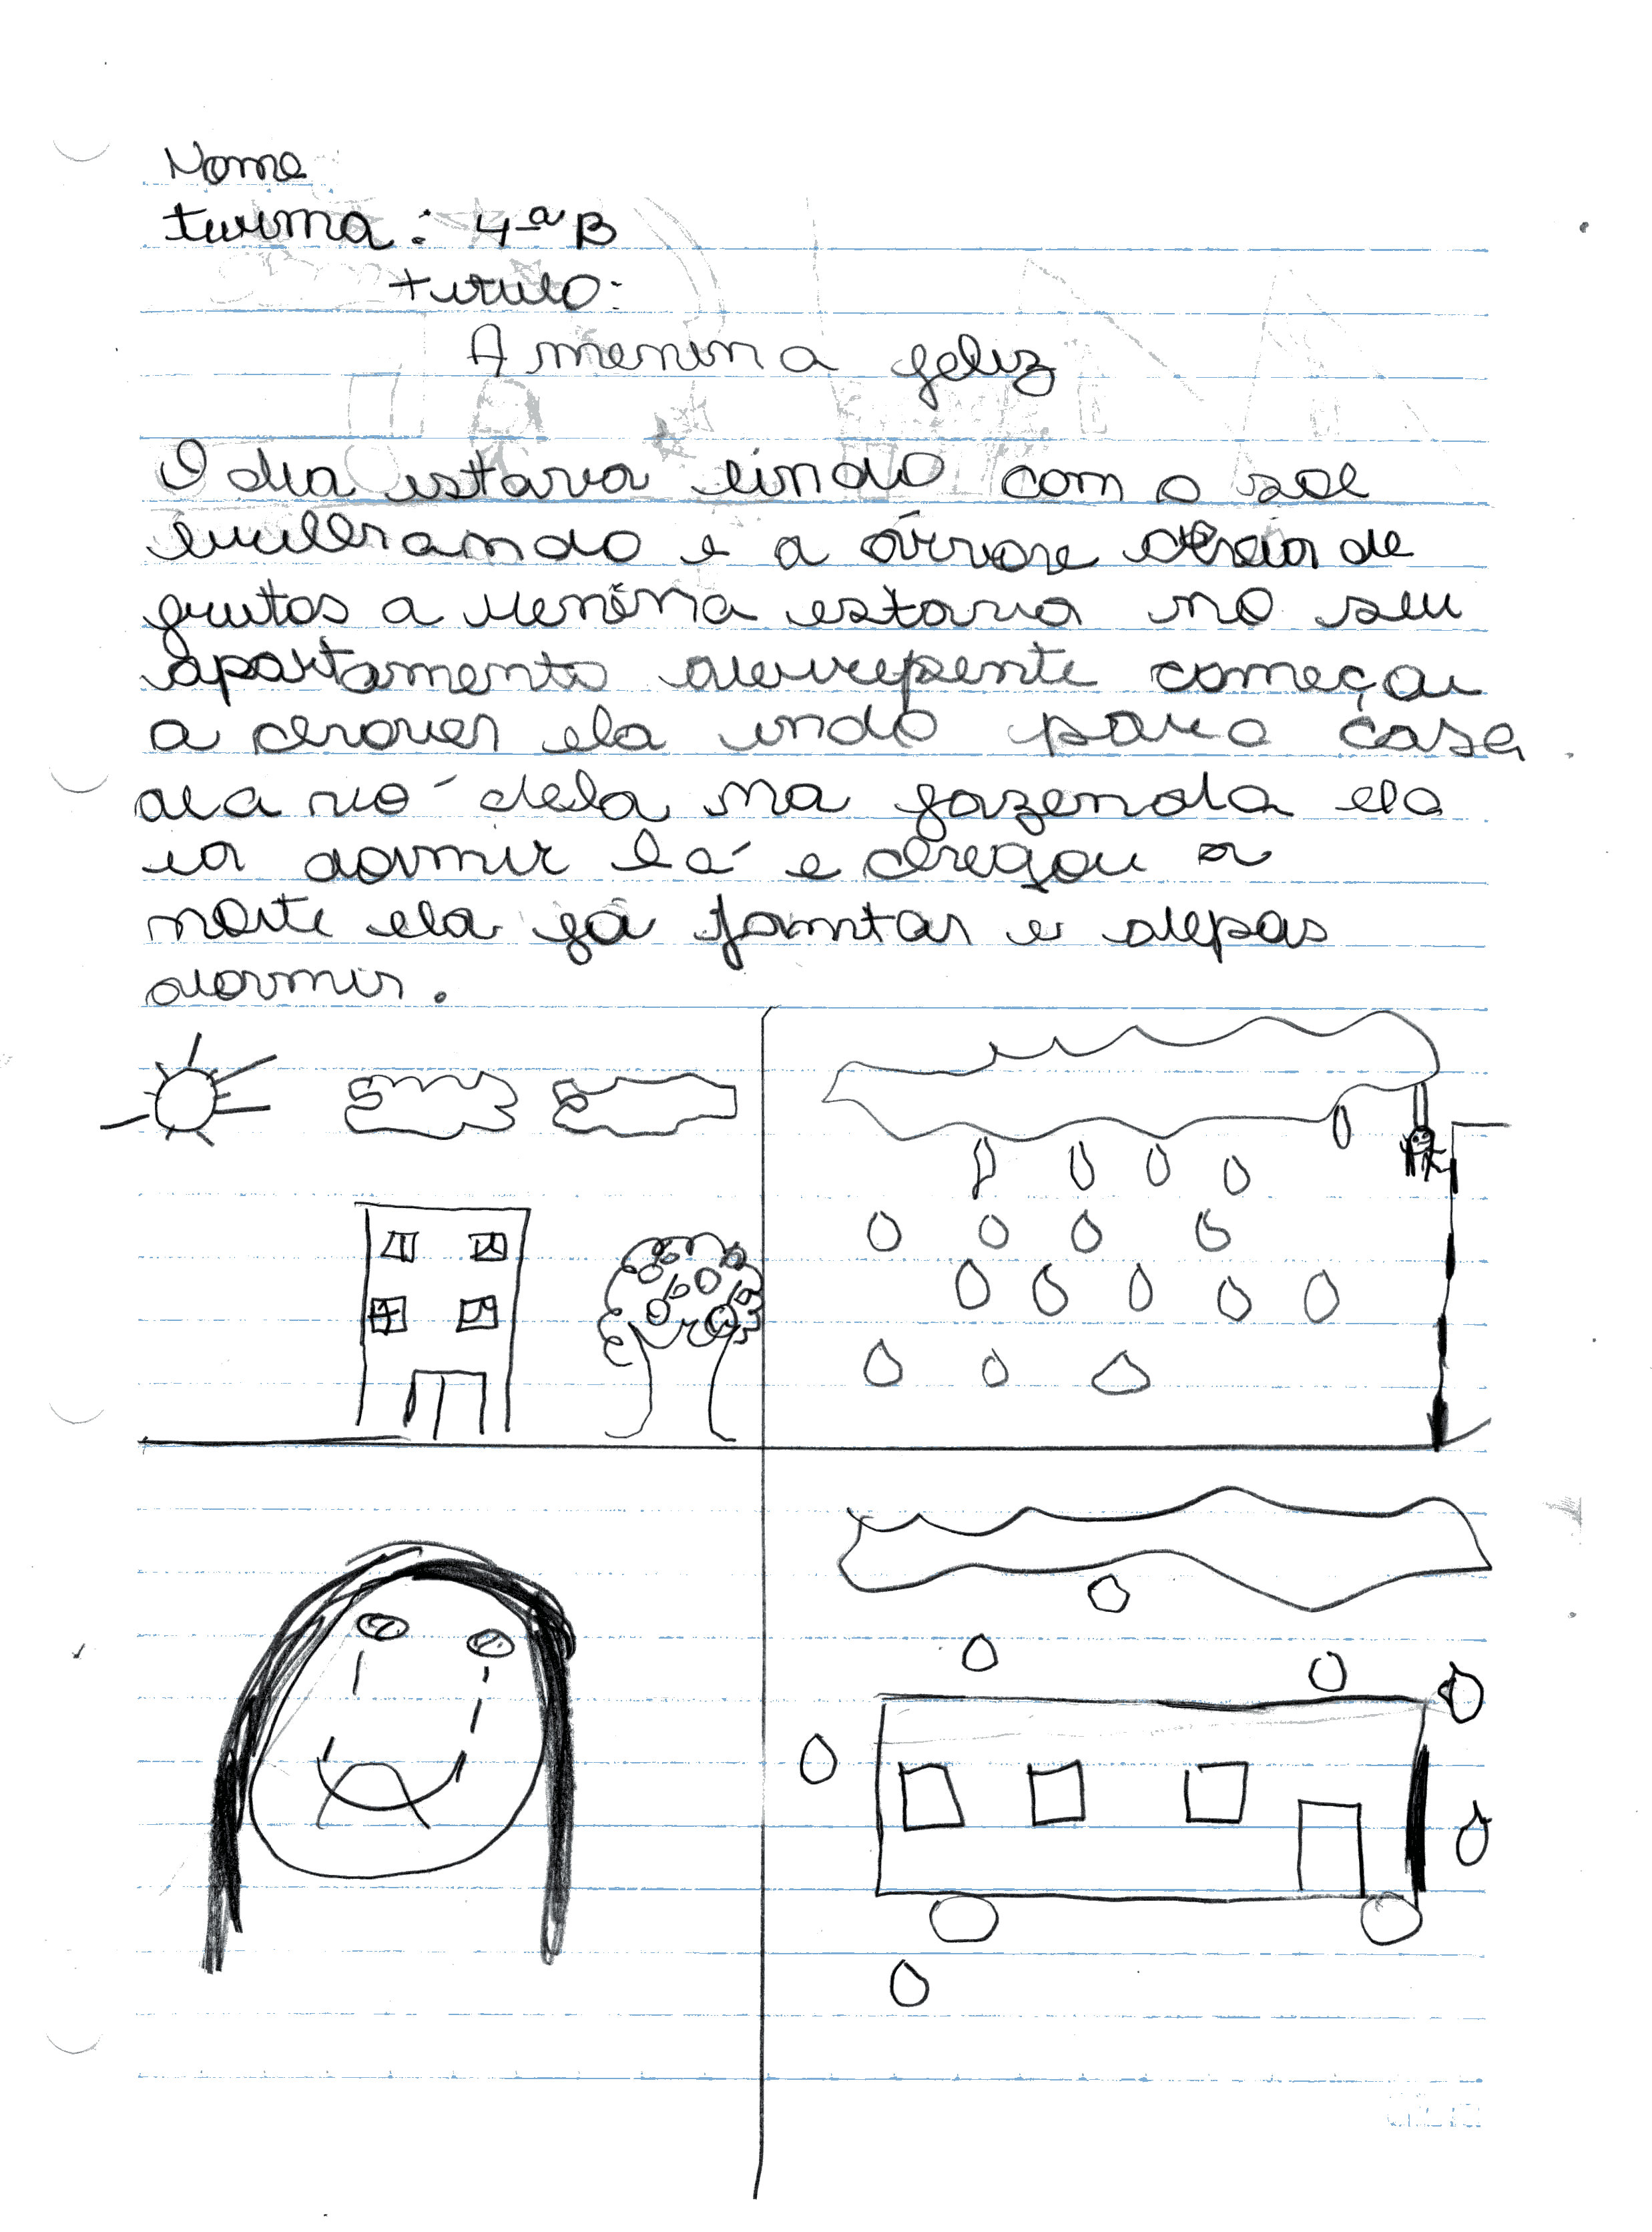 Nome
turma: 4ª B
titulo:
A menina feliz
O dia estava lindo com o sol
brilhando e a árvore cheia de
frutos a menina estava no seu
apartamento derrepente começou
a chover ela indo para casa
da vó dela na fazenda ela
ia dormir lá e chegou a
noite ela já jamtar e depos
dormir.